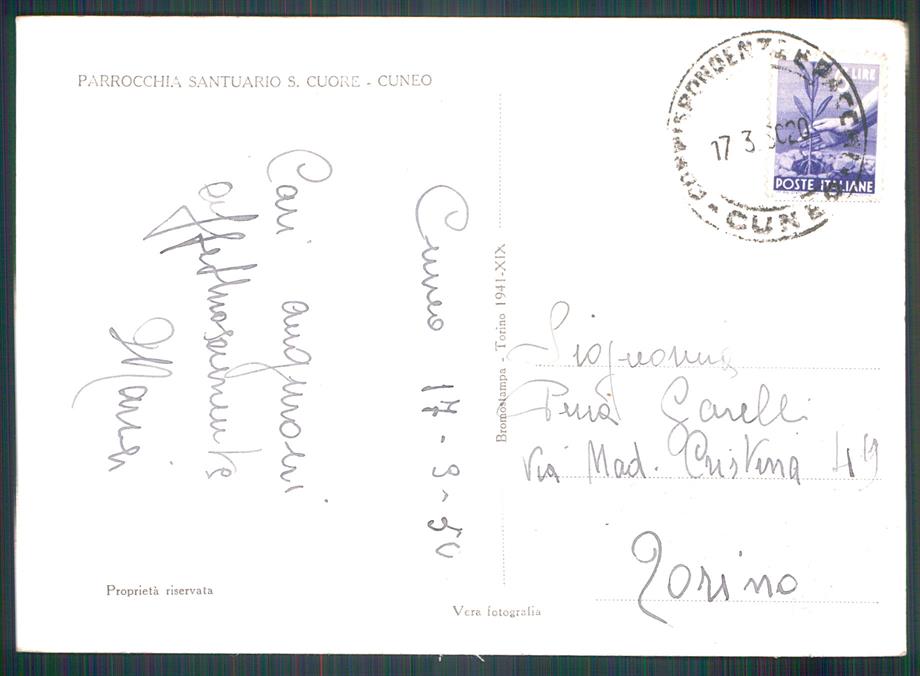 PARROCCHIA SANTUARIO S. CUORE - CUNEO
CORRISPONDENZE E PACCHI
17 3 50 20
- CUNEO
LIRE
POSTE ITALIANE
Cuneo 17-3-50
Cari auguroni
affettuosamente
Bromostampa - Torino 1941-XIX
Signorina
Pina Garelli
Via Mad. Cristina 49
Torino
Proprietà riservata
Vera fotografia